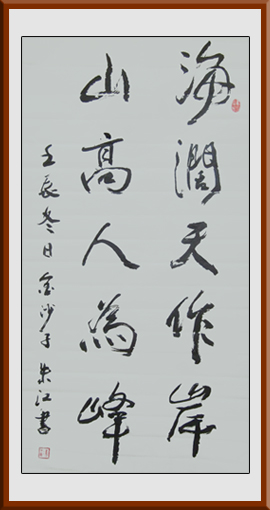 海濶天作岸
山高人為峰
壬辰冬日金沙子朱江書